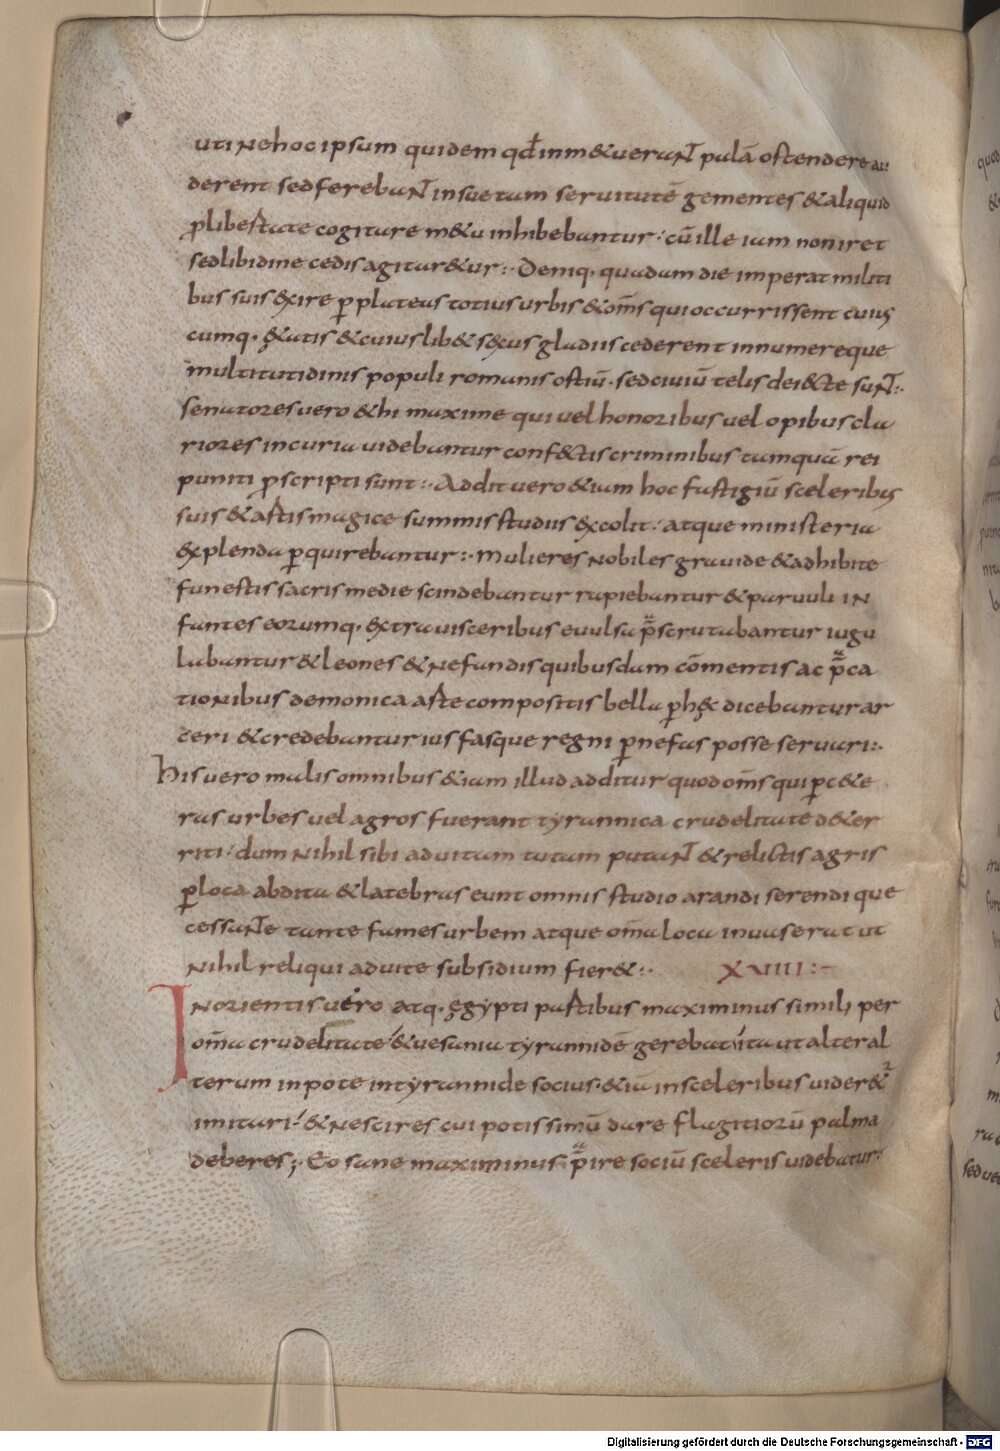 uti nehoc ipsum quidem qđ inm&ueraNT palā ostendere au
derent sedferebaNT insuetam seruitutē gementes &aliquid
ꝓlibertate cogitare m&u inhibebantur· cū ille iam non iret
sedlibidine cedis agitar&ur:· Deniq· quadam die imperat militi
bus suis &xire ꝑ plateas totius urbis &om̄s qui occurrissent cuius
cumq· &̨atis &cuiuslib& s&xus gladiis cederent innumereque
multitutidinis populi romanis ostiū· sed ciuiū telis dei&cte suNT:·
senatores uero &hi maxime qui uel honoribus uel opibus cla
riores incuria uidebantur conf&ctis criminibus tamquā rei
puniti ꝓscripti sunt:· Addit uero &iam hoc fastigiū sceleribus
suis &artis magice summis studiis &xcolit· atque ministeria
&xplenda ꝑquirebantur:· mulieres nobiles grauide &adhibite
funestis sacris medie scindebantur rapiebantur &paruuli in
fantes eorumq· &xtra uisceribus euulsa p̄scrutabantur iugu
labantur &leones &nefandis quibusdam cōmentis ac p̄ca
tionibus demonica arte compositis bella ꝑ hęc dicebantur ar
ceri &credebantur ius fasque regni ꝑ nefas posse seruari:·
His uero malis omnibus &iam illud additur quod om̄s qui ꝑ c&e
ras urbes uel agros fuerant tyrannica crudelitate d&er
riti· dum nihil sibi ad uitam tutam putaNT &relictis agris
ꝑ loca abdita &latebras eunt omnis studio arandi serendi que
cessaNTe tante fames urbem atque om̄a loca inuaserat ut
nihil reliqui aduite subsidium fier&:· XVIIII:–
In orientis uero atq· ęgypti partibus maximinus simili per
om̄a crudelitate &uesania tyrannidē gerebat ita ut alter al
terum inpote intyrannide socius· &iā insceleribus uider&ur
imitari· &nescires cui potissimū dare flagitiorū palma
deberes; Eo sane maximinus p̄ire sociū sceleris uidebatur:
Digitalisierung gefördert durch die Deutsche Forschungsgemeinschaft - DFG